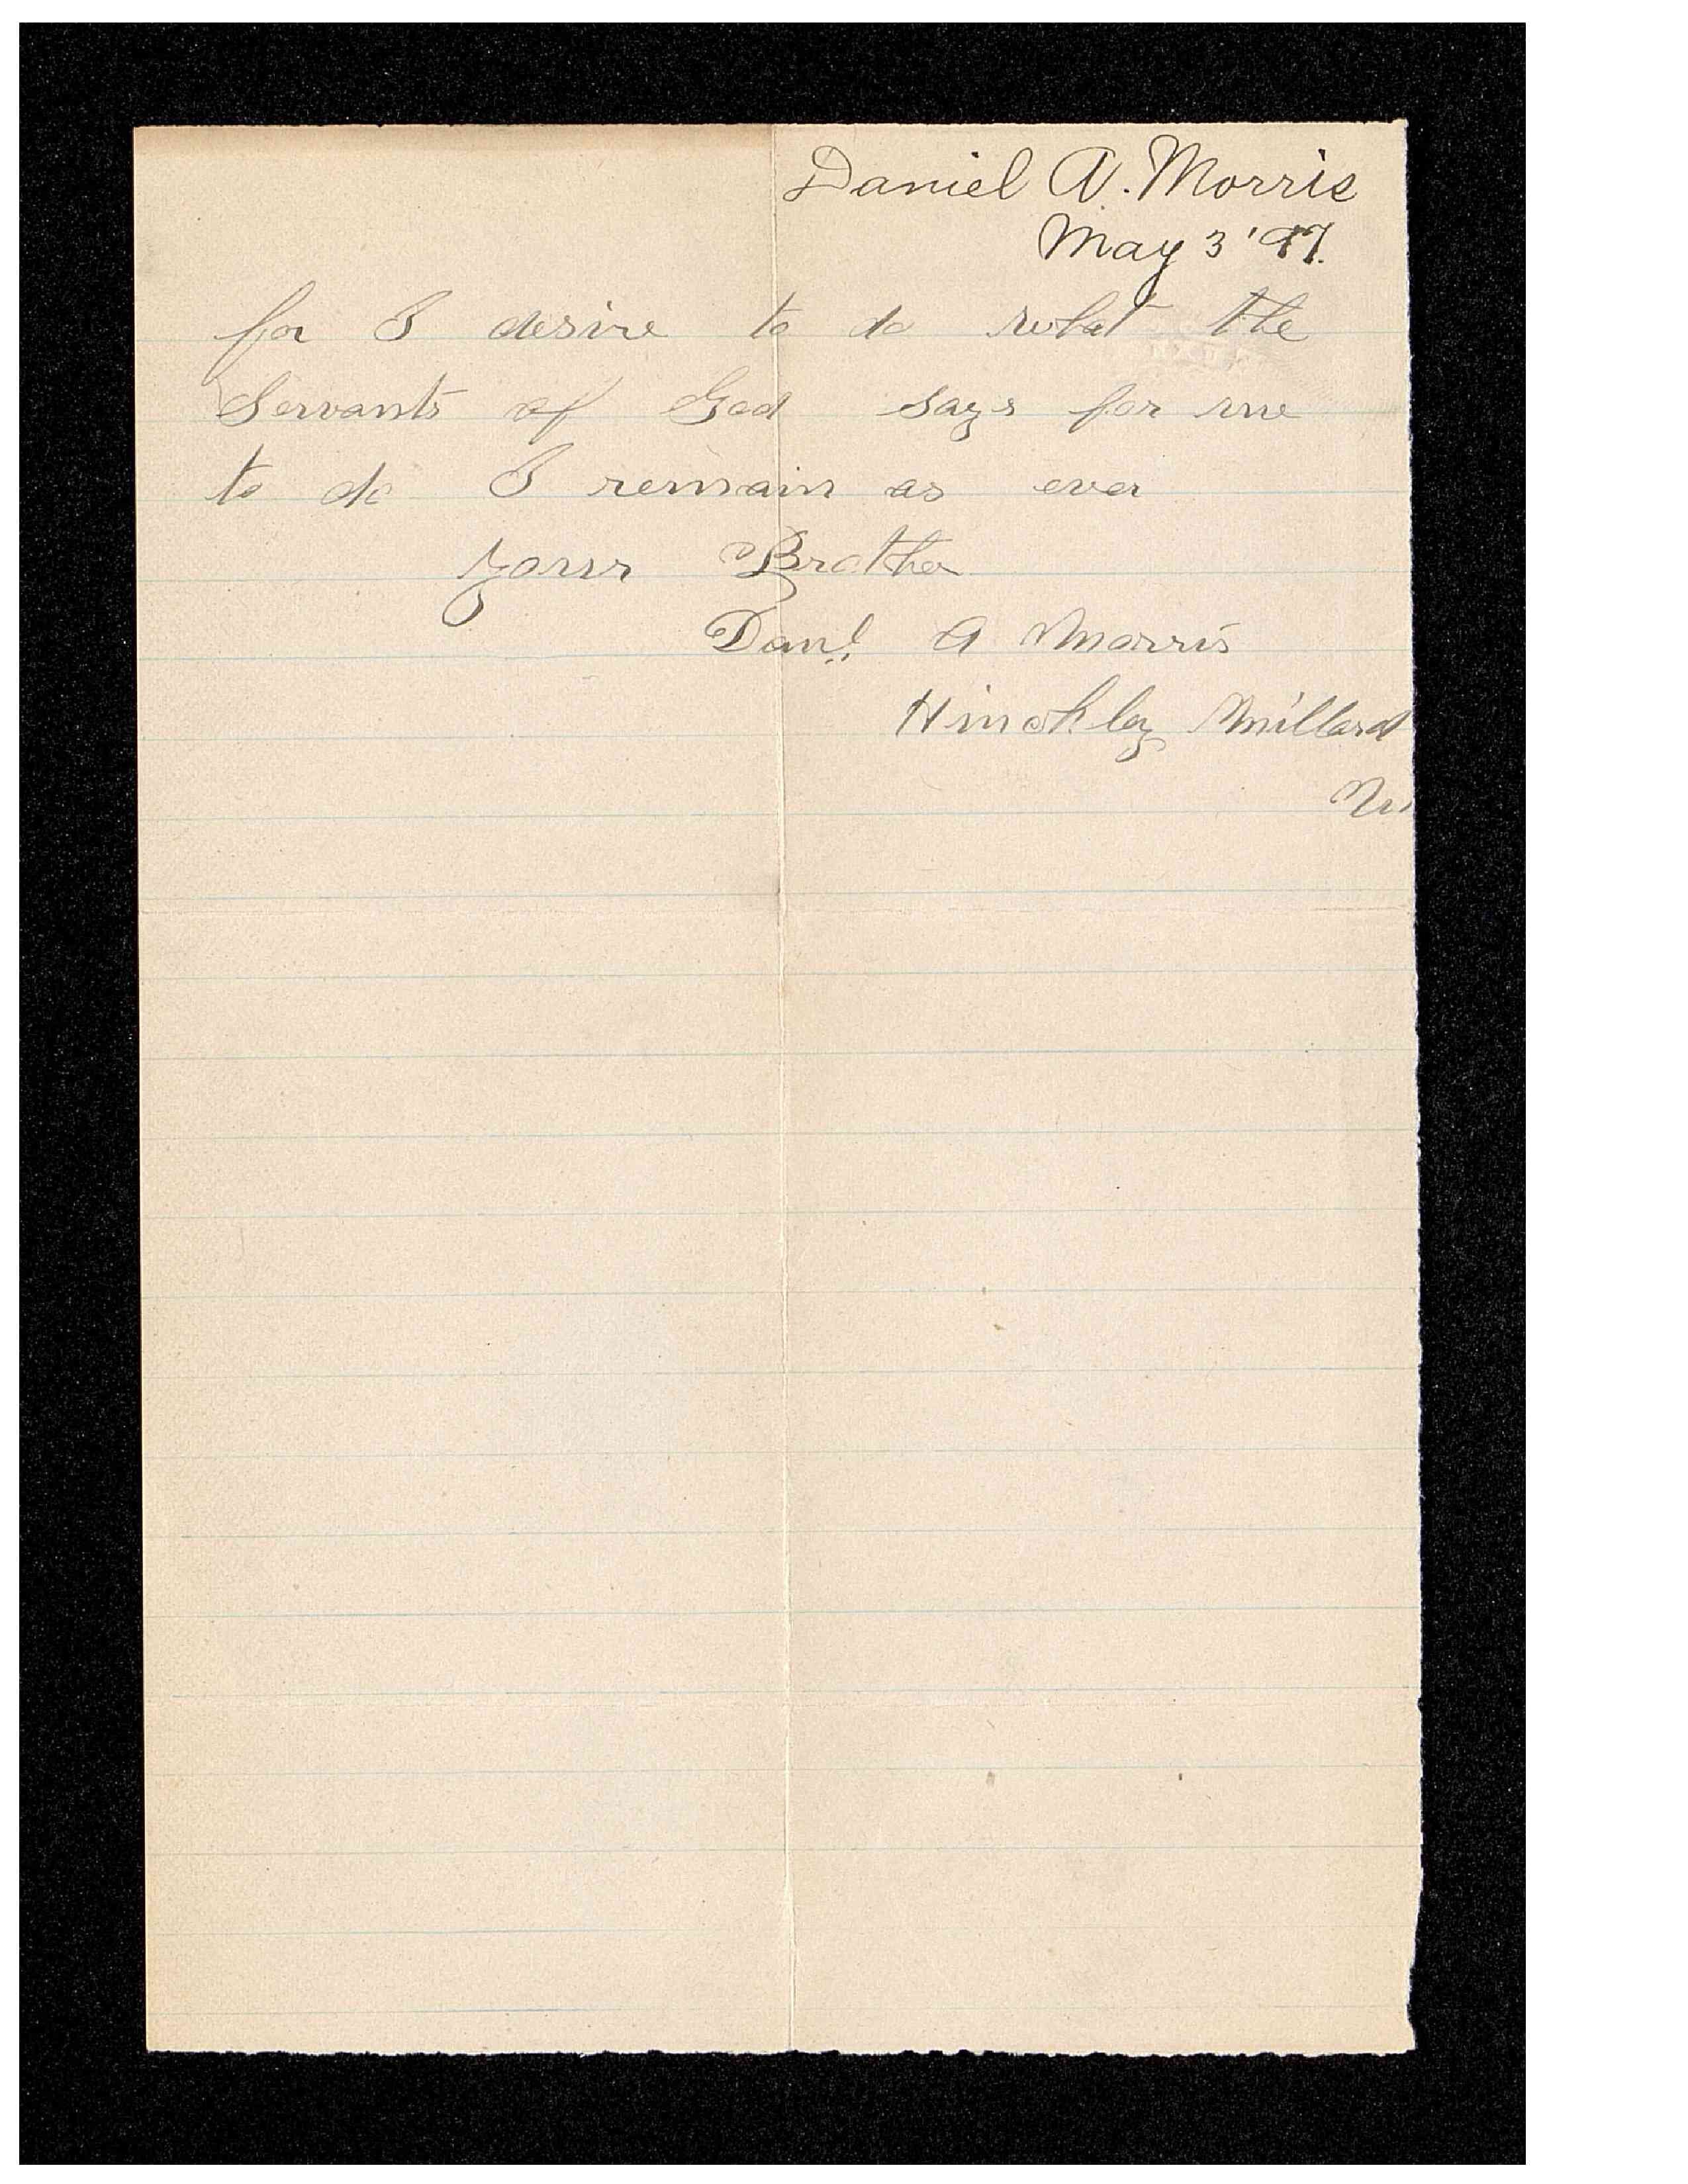 Daniel A. Morris
May 3 '97.
for I desire to do what the
Servants of God says for me
to do I remain as ever
your Brother
Danl. A Morris
Hinckley Millard